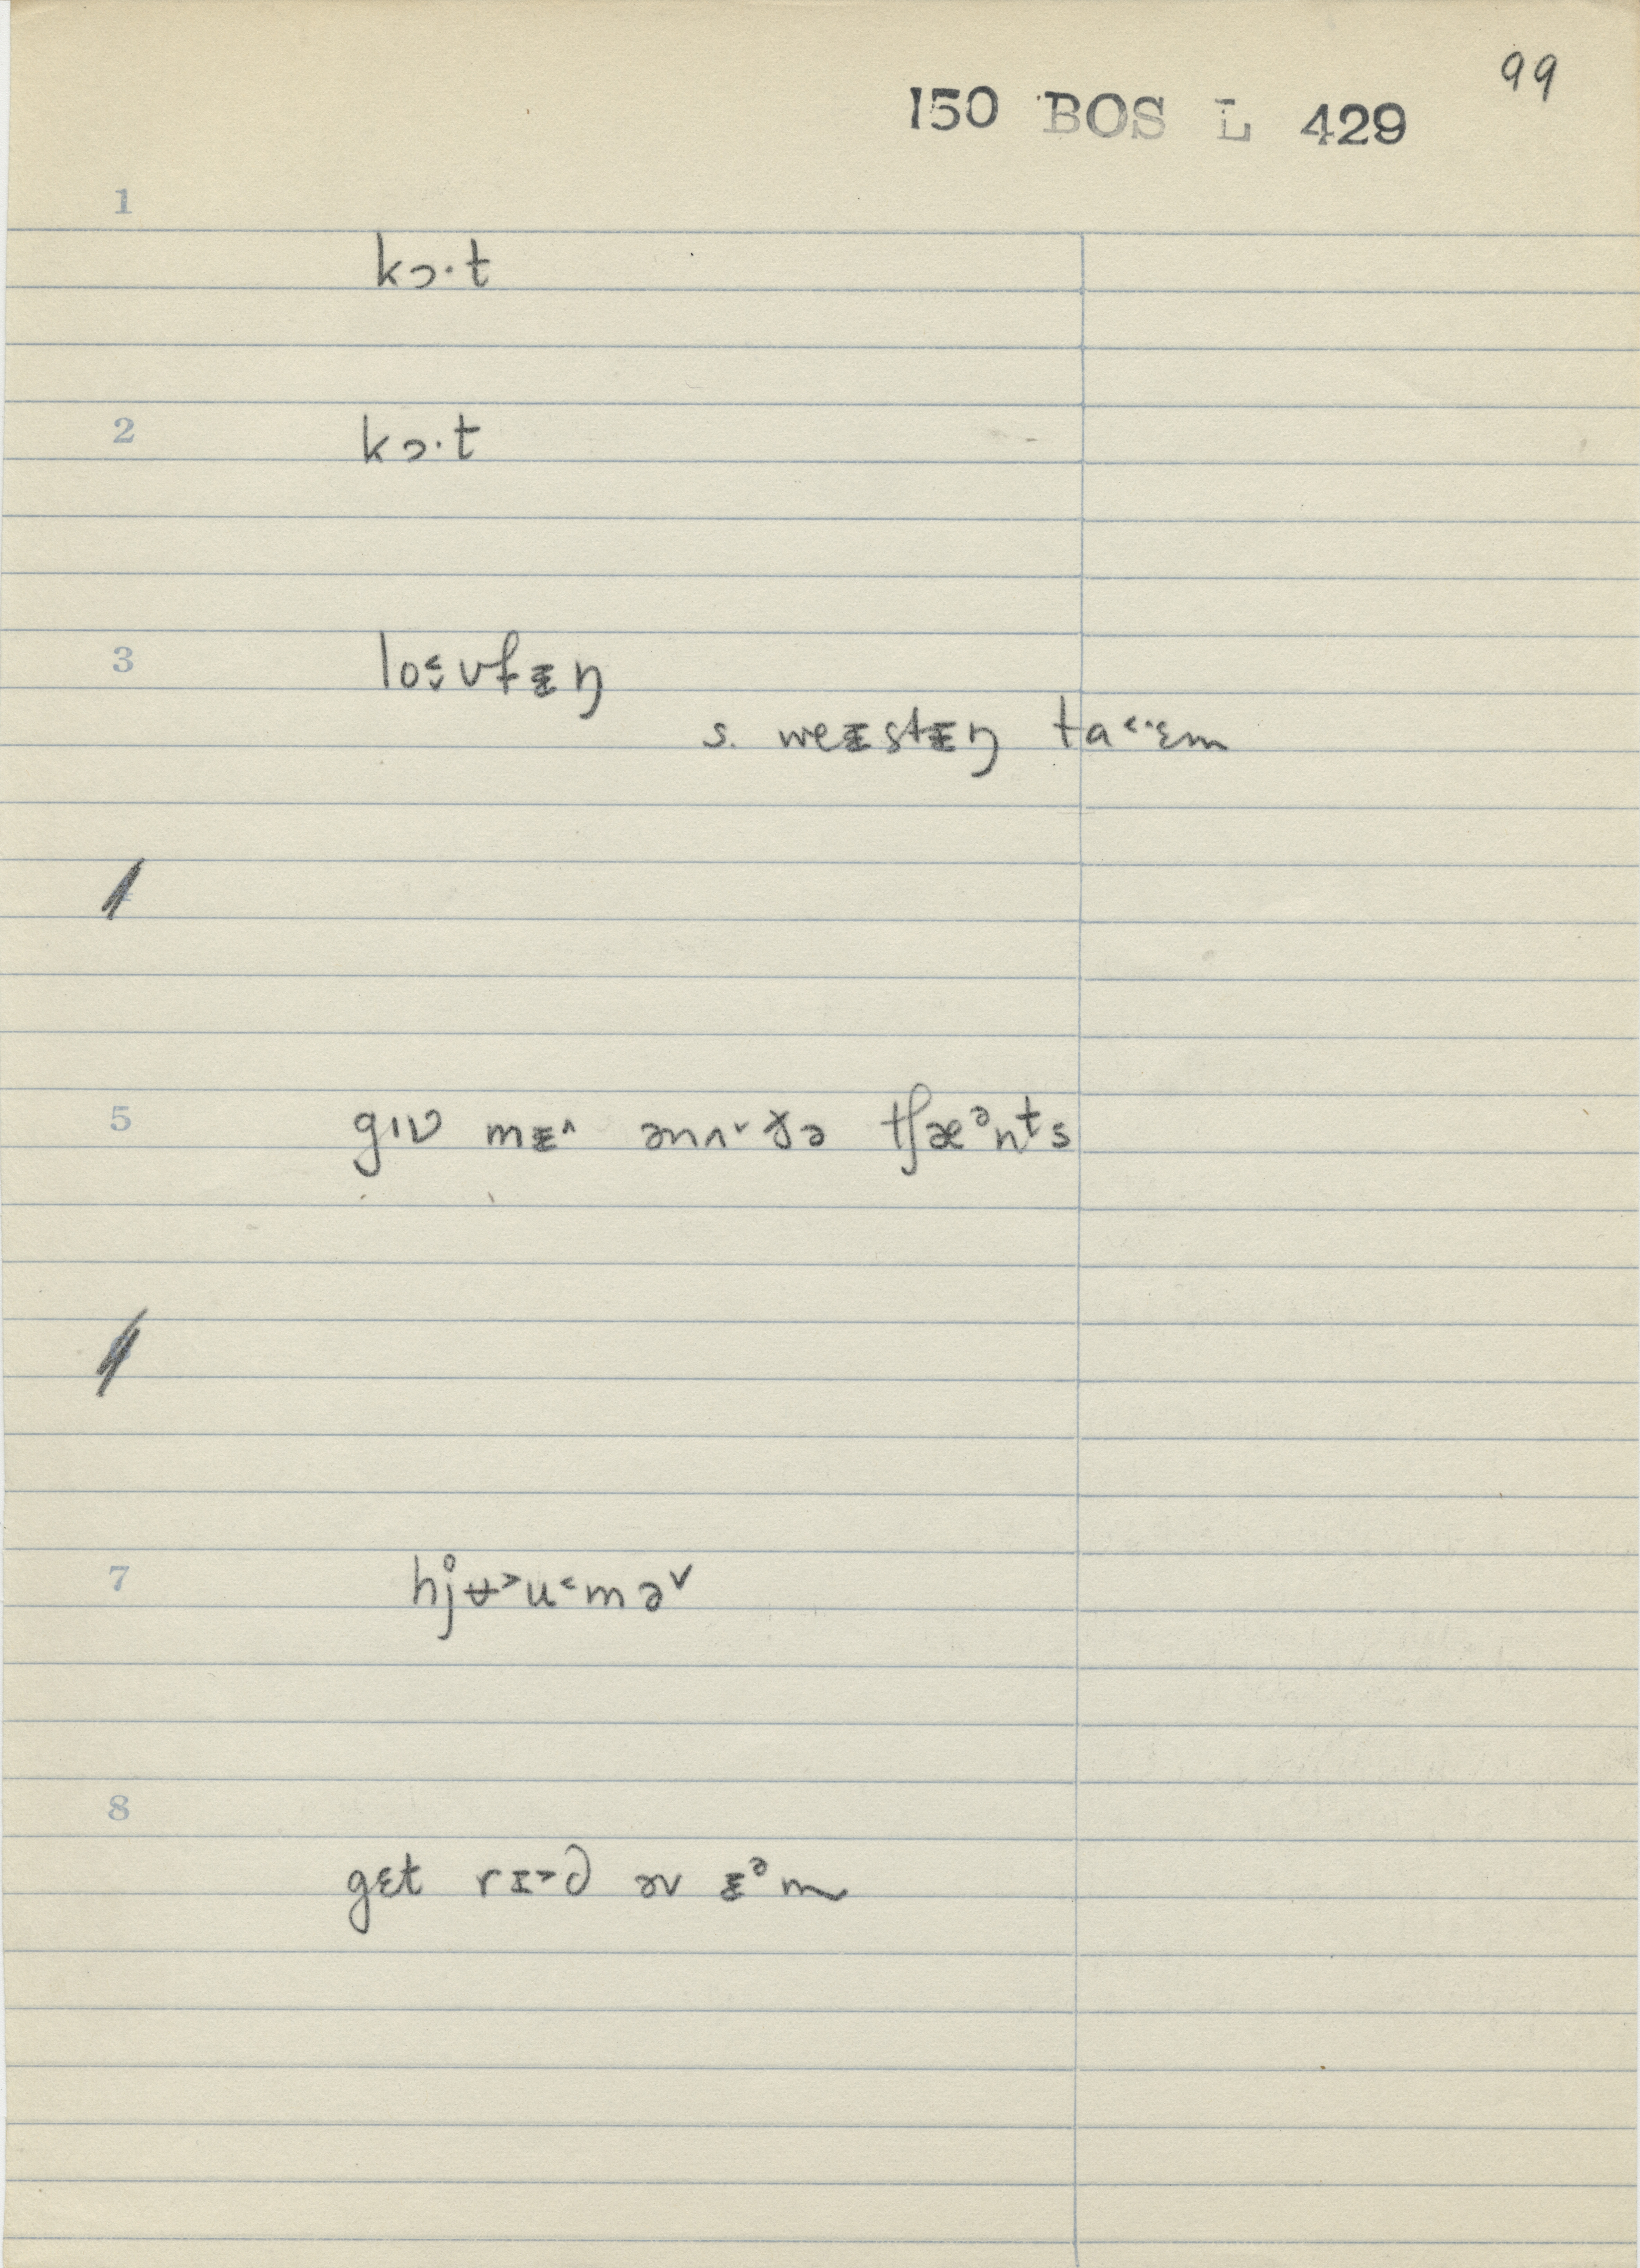 99
150 BOS L 429
1
kɔ·t
2
kɔ·t
3
lo˂̬ʊfᵻŋ
s. weᵻstᵻŋ ta˂·ᵻm
5
gɪv mᵻ˄ ənʌ˅ðə tʃæᵊnᵗs
7
hj̊ʉ˃u˂mə˅
8
gɛt rɪ˃d əv ᵻᵊm